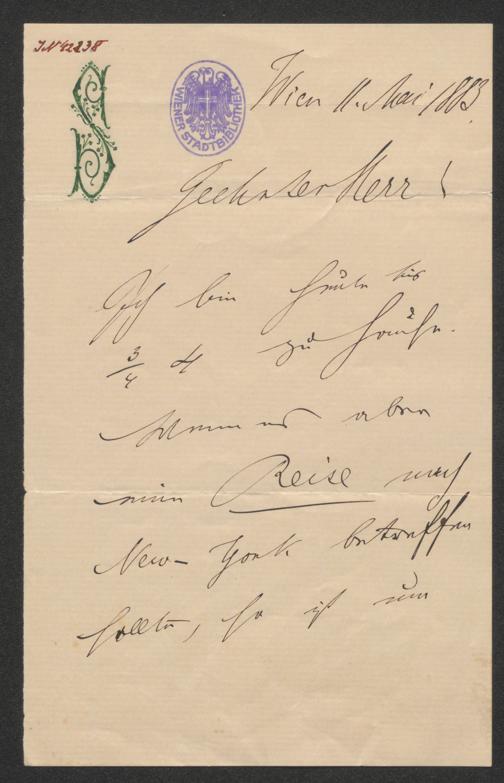 JN 42238
WIENER STADTBIBLIOTHEK
Wien 11. Mai 1883.
Geehrter Herr!
Ich bin heute bis
3/4 4 zu Hause.
Wenn es aber
eine Reise nach
New-York betreffen
sollte, so ist